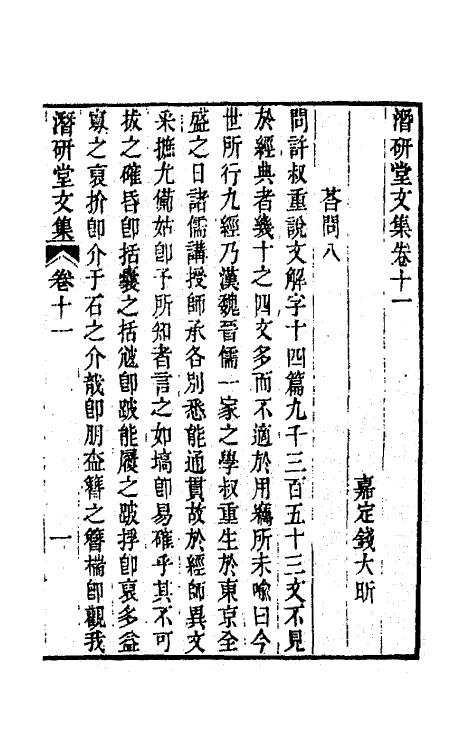 潛硏堂文集卷十一
嘉定錢大昕
荅問八
問許叔重說文解字十四篇九千三百五十三文不見
於經典者幾十之四文多而不適於用竊所未喩曰今
世所行九經乃漢魏晉儒一家之學叔重生於東京全
盛之日諸儒講授師承各別悉能通貫故於經師異文
采摭尤備姑卽予所知者言之如塙卽易確乎其不可
拔之確昏卽括囊之括𨂂卽跛能履之跛捊卽裒多益
寡之裒扴卽介于石之介戠卽朋盍簪之簪楴卽觀我
潛研堂文集
卷十一
一